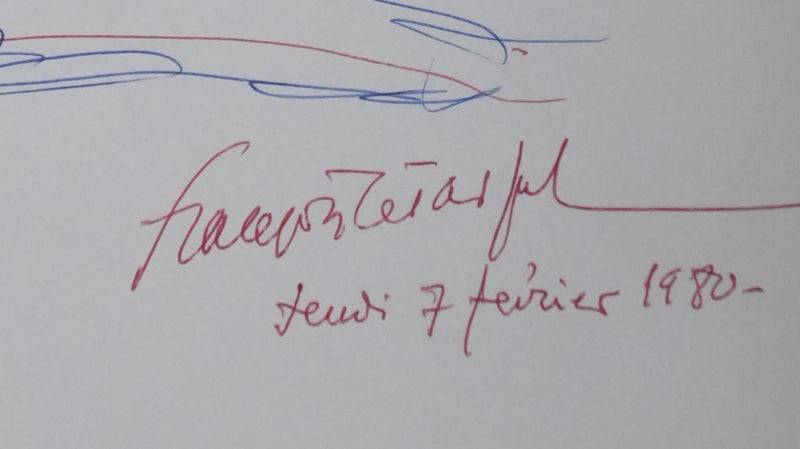 françois
jeudi 7 février 1980-